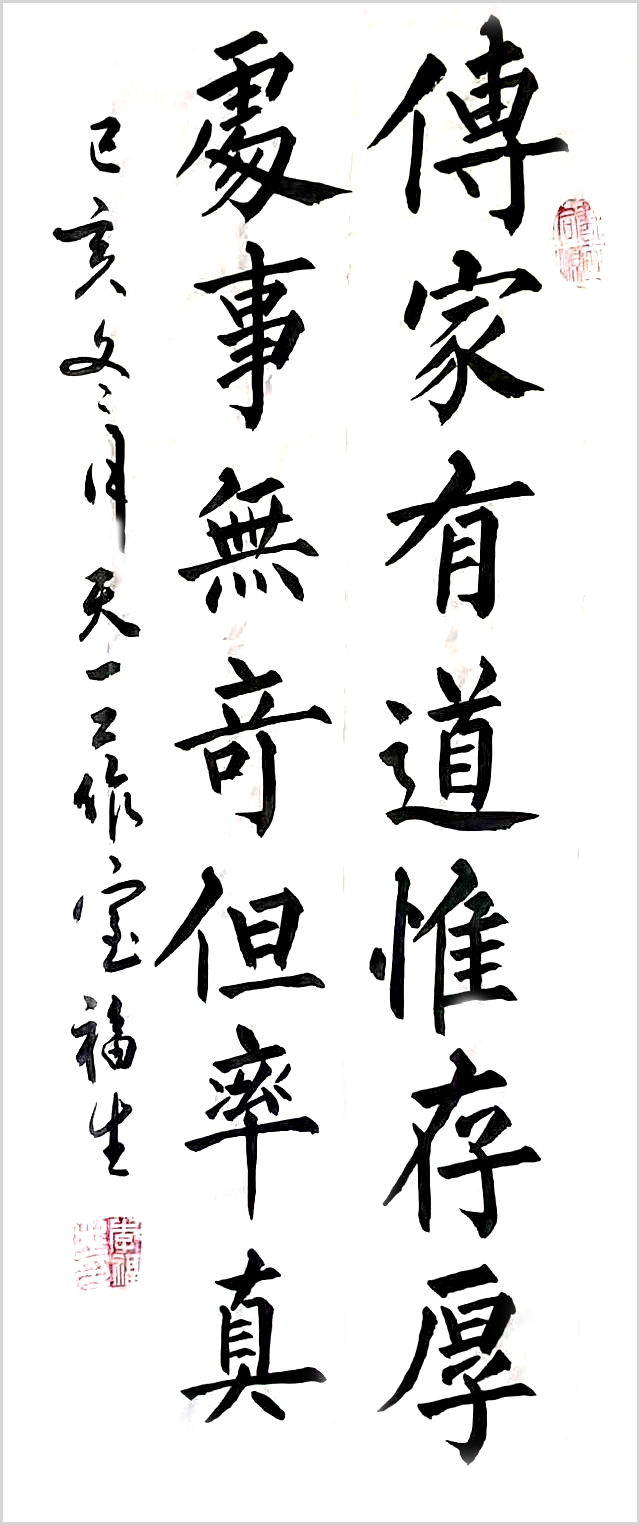 傳家有道惟存厚
處事無奇但率真
己亥冬月天一工作室福生